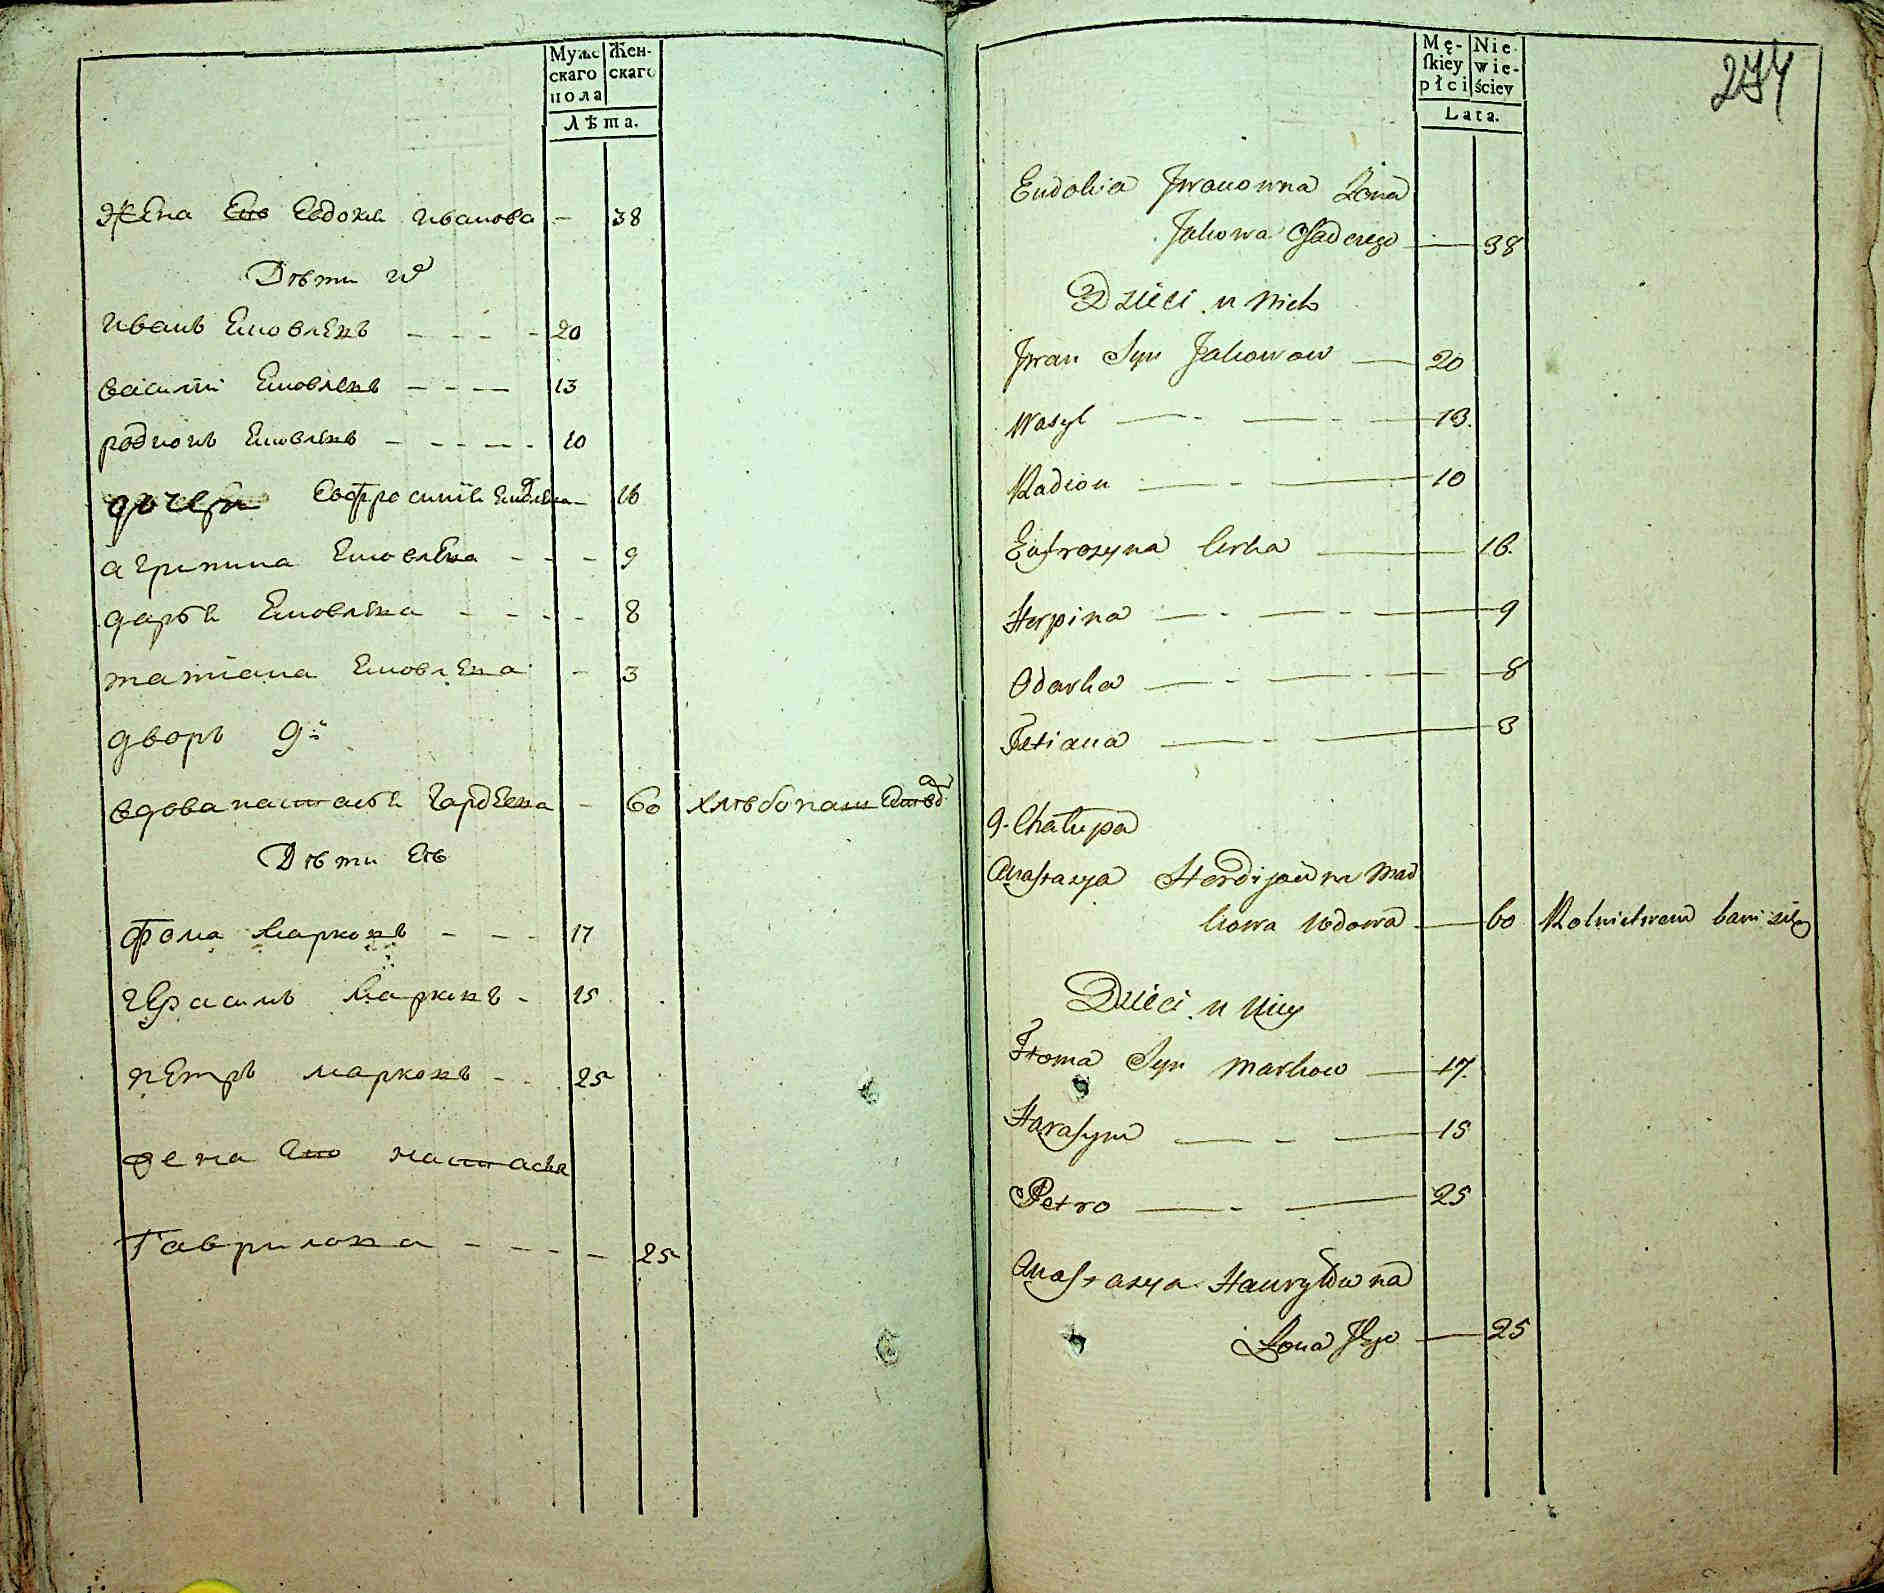 Муже Жен-
скаго скаго
пола
Лѣта.
Жена Его Евдокия иванова - 38
Дѣти
иванъ Еіаковлевъ - - - - 20
василии Еіаковлевъ - - - - 13
родионъ Еіаковлевъ - - - - - 10
дочери Ефросиния - 16
агрипина - - - 9
дарья - - - - 8
татиана - 3
дворъ 9й
вдова настасья - 60 хлѣбопаш
Дѣти Еѣ
фома марковъ - - - 17
герасимъ марковъ - 15
петръ марковъ - - 25
жена Его настасья
Гаврилова - - - - - 25
Mę- Nie-
ſkiey wie-
płci ściey
Lata.
274
Eudokia Jwanowna Żona
Jakowa Osadczego — 38
Dzieci u nich
Jwan Syn Jakowow — 20
Wasyl — - — - — 13.
Radion — - — 10
Eufrozyna Corka — 16.
Herpina — - — - — 9
Odarka — - — - — 8
Tetiana — - — 3
9. Chałupa
Anastazya Hordijowna Mar
kowa Wdowa — 60 Rolnictwem bawi się
Dzieci u niey
Froma Syn Markow — 17.
Harasym — - — 15
Petro — - — 25
Anastazya Hawryłowna
Żona Jego — 25